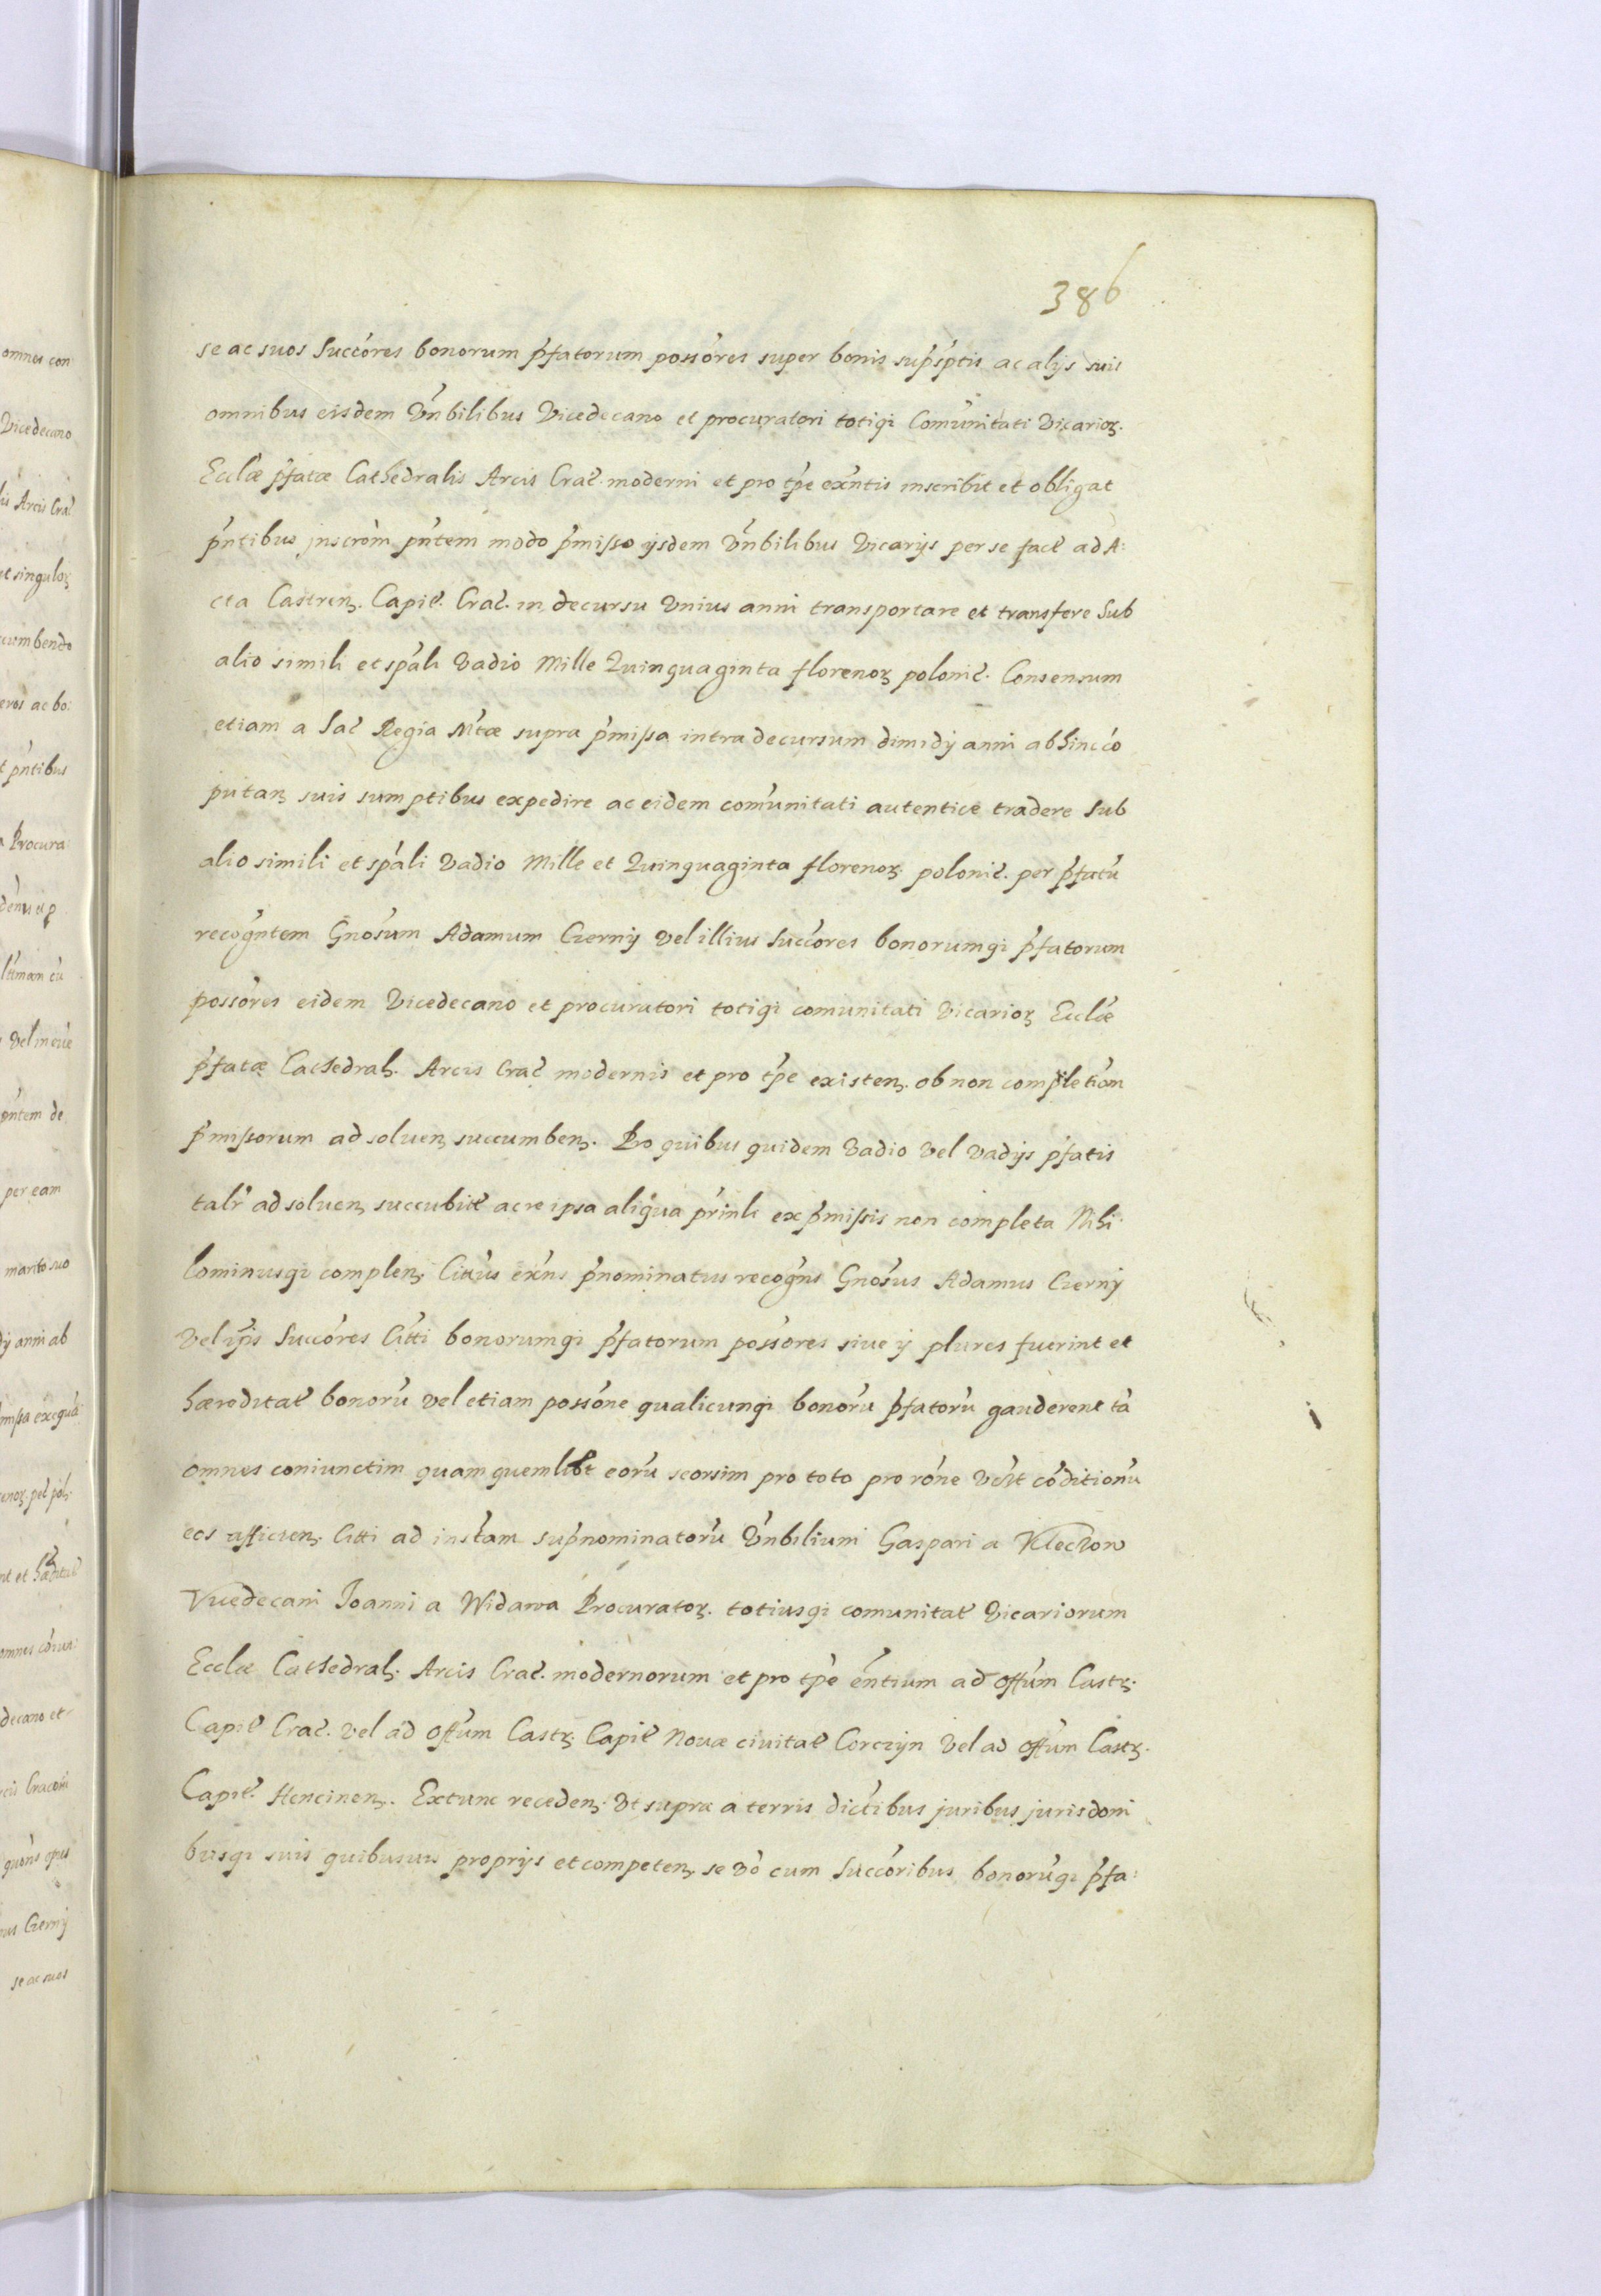 386
se ac suos Succores bonorum pfatorum possores super bonis supsptis ac alijs suis
omnibus eisdem Vnbilibus Vicedecano et procuratori totiqi Comunitati Vicarioꝝ.
Ecclæ pfatæ Cathedralis Arcis Crac. moderni et pro tpe exntis inscribit et obligat
pntibus jnscrom pntem modo pmisso ijsdem Vnbilibus Vicarijs per se fact ad A:
cta Castren. Capit. Crac. in decursu Vnius anni transportare et transfere Sub
alio simili et spali Vadio Mille Quinquaginta florenoꝝ polonic. Consensum
etiam a Sac Regia Mtæ supra pmissa intra decursum dimidij anni abhinc co
putan suis sumptibus expedire ac eidem comunitati autentice tradere Sub
alio simili et spali Vadio Mille et Quinquaginta florenoꝝ polonic. per pfatu
recogntem Gnosum Adamum Czerny Vel illius Succores bonorumqi pfatorum
possores eidem Vicedecano et procuratori totiqi comunitati Vicarioꝝ Ecclæ
pfatæ Cathedral. Arcis Crac modernis et pro tpe existen. ob non completiom
pmissorum ad soluen succumben. Pro quibus quidem Vadio Vel Vadijs pfatis
talr ad soluen succubit ac re ipsa aliqua prinli ex pmissis non completa Nihi:
lominusqi complen. Cittus exns pnominatus recogns Gnosus Adamus Czerny
Vel ipis Succores Citti bonorumqi pfatorum possores siue ij plures fuerint et
hæreditat bonoru Vel etiam possone qualicunqi bonoru pfatoru gauderent ta
omnes coniunctim quam quemlibt eoru seorsim pro toto pro rone coditionu
eos afficien. Citti ad instam supnominatoru Vnbilium Gaspari a Kleczow
Vicedecani Joanni a Widawa Procuratoꝝ. totiusqi comunitat Vicariorum
Ecclæ Cathedral. Arcis Crac. modernorum et pro tpe entium ad Offum Castꝝ.
Capit Crac. Vel ad Offum Castꝝ. Capit Nouæ ciuitat Corczyn Vel ad Offum Castꝝ.
Capit. Hencinen. Extunc receden. Vt supra a terris dictibus juribus jurisdoni
busqi suis quibusuis proprijs et competen. se Vo cum Succoribus bonoruqi pfa: